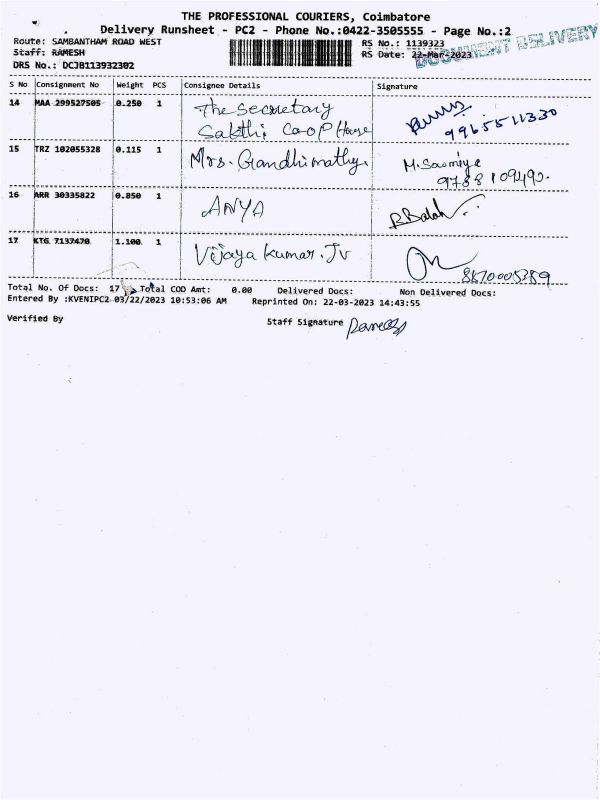 THE PROFESSIONAL COURIERS, Coimbatore
Delivery Runsheet - PC2 - Phone No.:0422-3505555 - Page No.:2
Route: SAMBANTHAM ROAD WEST
RS No.: 1139323
Staff: RAMESH
RS Date: 22-Mar-2023
DOCUMENT DELIVERY
DRS No.: DCJB113932302
S No Consignment No Weight PCS Consignee Details Signature
14 MAA 299527505 0.250 1 The Secretary
Sakthi Co-op House
9965511330
15 TRZ 102055328 0.115 1 Mrs. Gandhimathy
M. Sowmiya
16 ARR 30335822 0.850 1 ANYA
R Balah
17 KTG 7137470 1.100 1 Vijaya Kumar. Jv
8870005289
Total No. Of Docs: 17 Total COD Amt: 0.00 Delivered Docs: Non Delivered Docs:
Entered By :KVENIPC2 03/22/2023 10:53:06 AM Reprinted On: 22-03-2023 14:43:55
Verified By Staff Signature